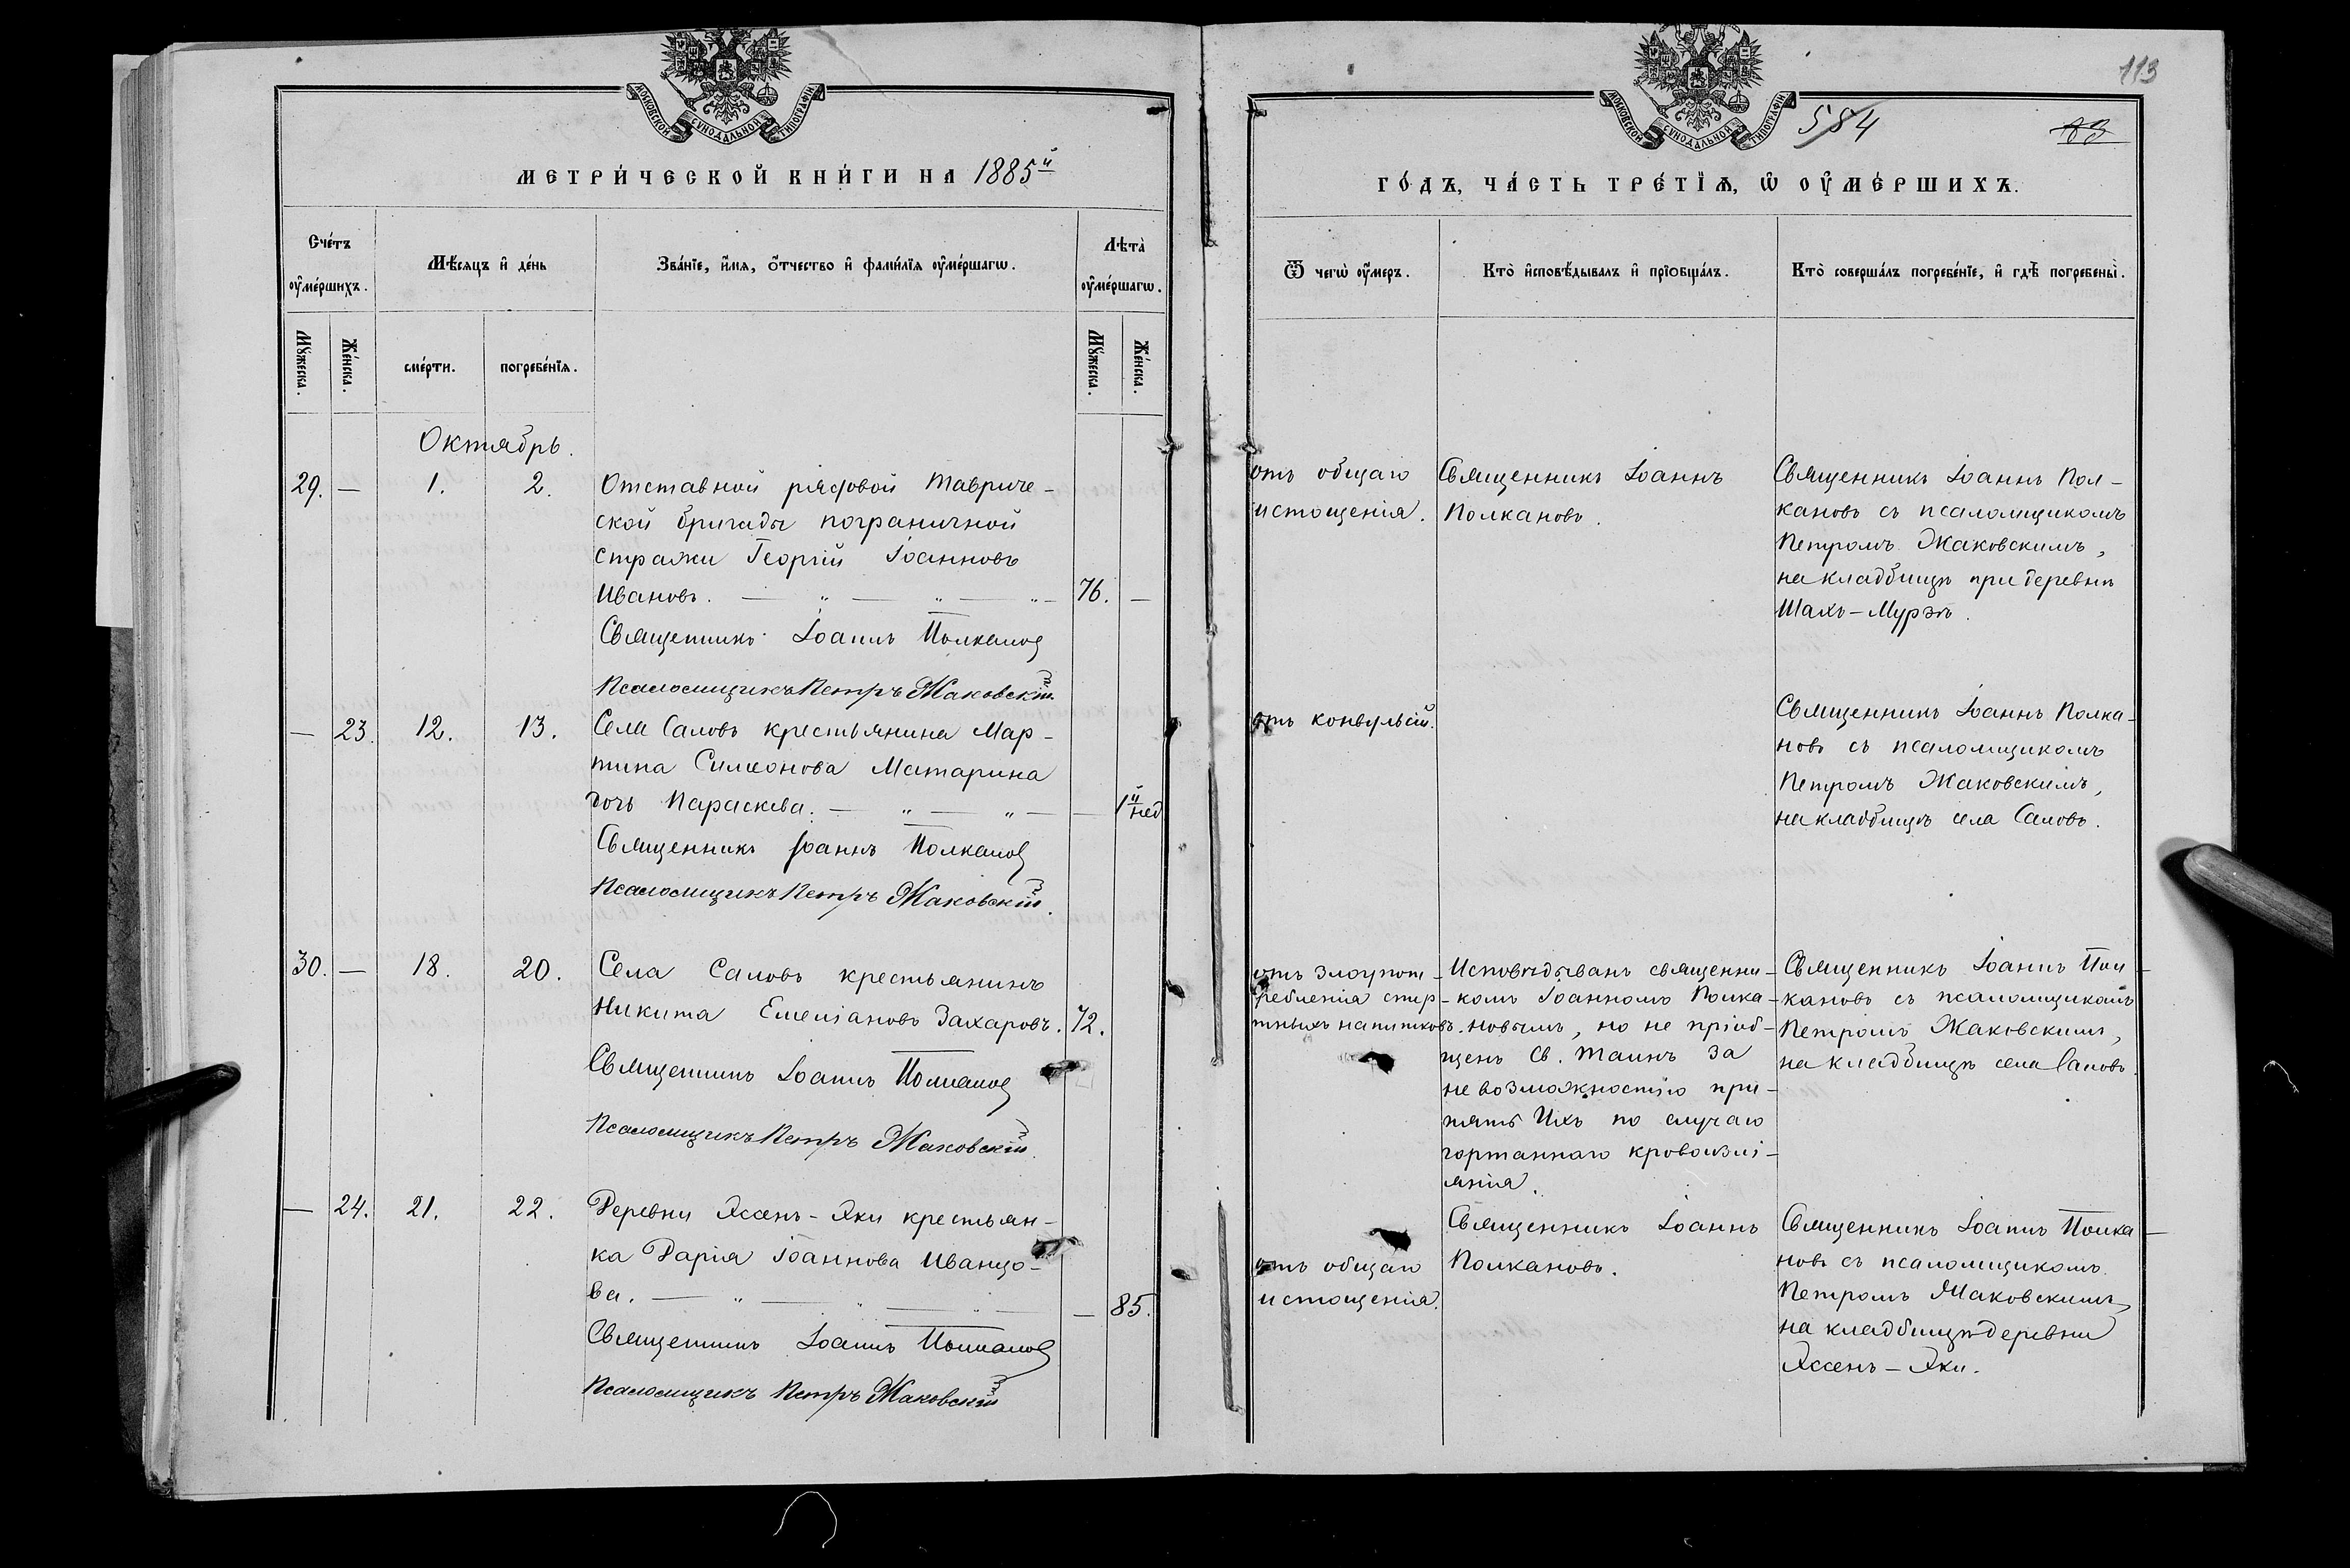 МОСКОВСКОЙ СѴНОДАЛЬНОЙ ТИПОГРАФІИ
МЕТРИ́ЧЕСКОЙ КНИ́ГИ НА 1885й
Сче́тъ ᲂу҆ме́ршихъ.
Мѣ́сяцъ и҆ де́нь
Зва́нїе, и҆́мя, ѻ҆́тчество и҆ фами́лїя ᲂу҆ме́ршагѡ.
Лѣта̀ ᲂу҆ме́ршагѡ.
Мꙋ́жеска.
Же́нска.
сме́рти.
погребе́нїя.
Мꙋ́жеска.
Же́нска.
Октябрь.
29. — 1. 2. Отставной рядовой Тавриче-
ской бригады пограничной
стражи Георгій Іоанновъ
Ивановъ. — „ — „ — „ — 76. —
Священникъ Іоаннъ Полкановъ
Псаломщикъ Петръ Жаковскій.
— 23. 12. 13. Села Саловъ крестьянина Мар-
тина Симеонова Матарина
дочь Параскева. — „ — „ — — 1й нед
Священникъ Іоаннъ Полкановъ
Псаломщикъ Петръ Жаковскій.
30. — 18. 20. Села Саловъ крестьянинъ
Никита Емеліановъ Захаровъ. 72.
Священникъ Іоаннъ Полкановъ
Псаломщикъ Петръ Жаковскій.
— 24. 21. 22. Деревни Яссенъ-Яки крестьян-
ка Дарія Іоаннова Иванцо-
ва. — „ — „ — „ — — 85.
Священникъ Іоаннъ Полкановъ
Псаломщикъ Петръ Жаковскій
113
МОСКОВСКОЙ СѴНОДАЛЬНОЙ ТИПОГРАФІИ
584
ГО́ДЪ, ЧА́СТЬ ТРЕ́ТЇѦ, Ѡ҆ ОУ҆МЕ́РШИХЪ.
Ѿ чегѡ̀ ᲂу҆́меръ.
Кто̀ и҆сповѣ́дывалъ и҆ прїѡбща́лъ.
Кто̀ соверша́лъ погребе́нїе, и҆ гдѣ̀ погребены̀.
отъ общаго
истощенія.
Священникъ Іоаннъ
Полкановъ.
Священникъ Іоаннъ Пол-
кановъ съ псаломщикомъ
Петромъ Жаковскимъ,
на кладбищѣ при деревнѣ
Шахъ-Мурзѣ.
отъ конвульсій.
Священникъ Іоаннъ Полка-
новъ съ псаломщикомъ
Петромъ Жаковскимъ,
на кладбищѣ села Саловъ.
отъ злоупот-
ребленія спир-
тныхъ напитковъ.
Исповѣдыванъ священни-
комъ Іоанномъ Полка-
новымъ, но не пріоб-
щенъ Св. Таинъ за
невозможностію при-
нять Ихъ по случаю
гортаннаго кровоизлі-
янія.
Священникъ Іоаннъ Пол-
кановъ съ псаломщикомъ
Петромъ Жаковскимъ,
на кладбищѣ села Саловъ.
отъ общаго
истощенія.
Священникъ Іоаннъ
Полкановъ.
Священникъ Іоаннъ Полка-
новъ съ псаломщикомъ
Петромъ Жаковскимъ,
на кладбищѣ деревни
Яссенъ-Яки.